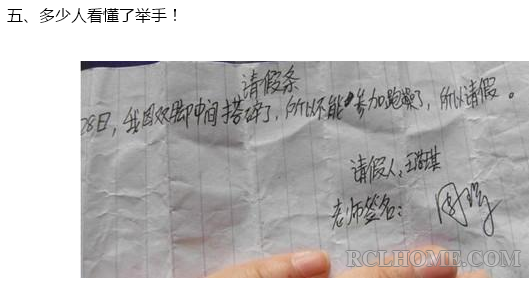 五、多少人看懂了举手！
请假条
28日，我因双脚中间搭碎了，所以不能参加跑操了，所以请假。
请假人：王琪琪
老师签名：
RCLHOME.COM